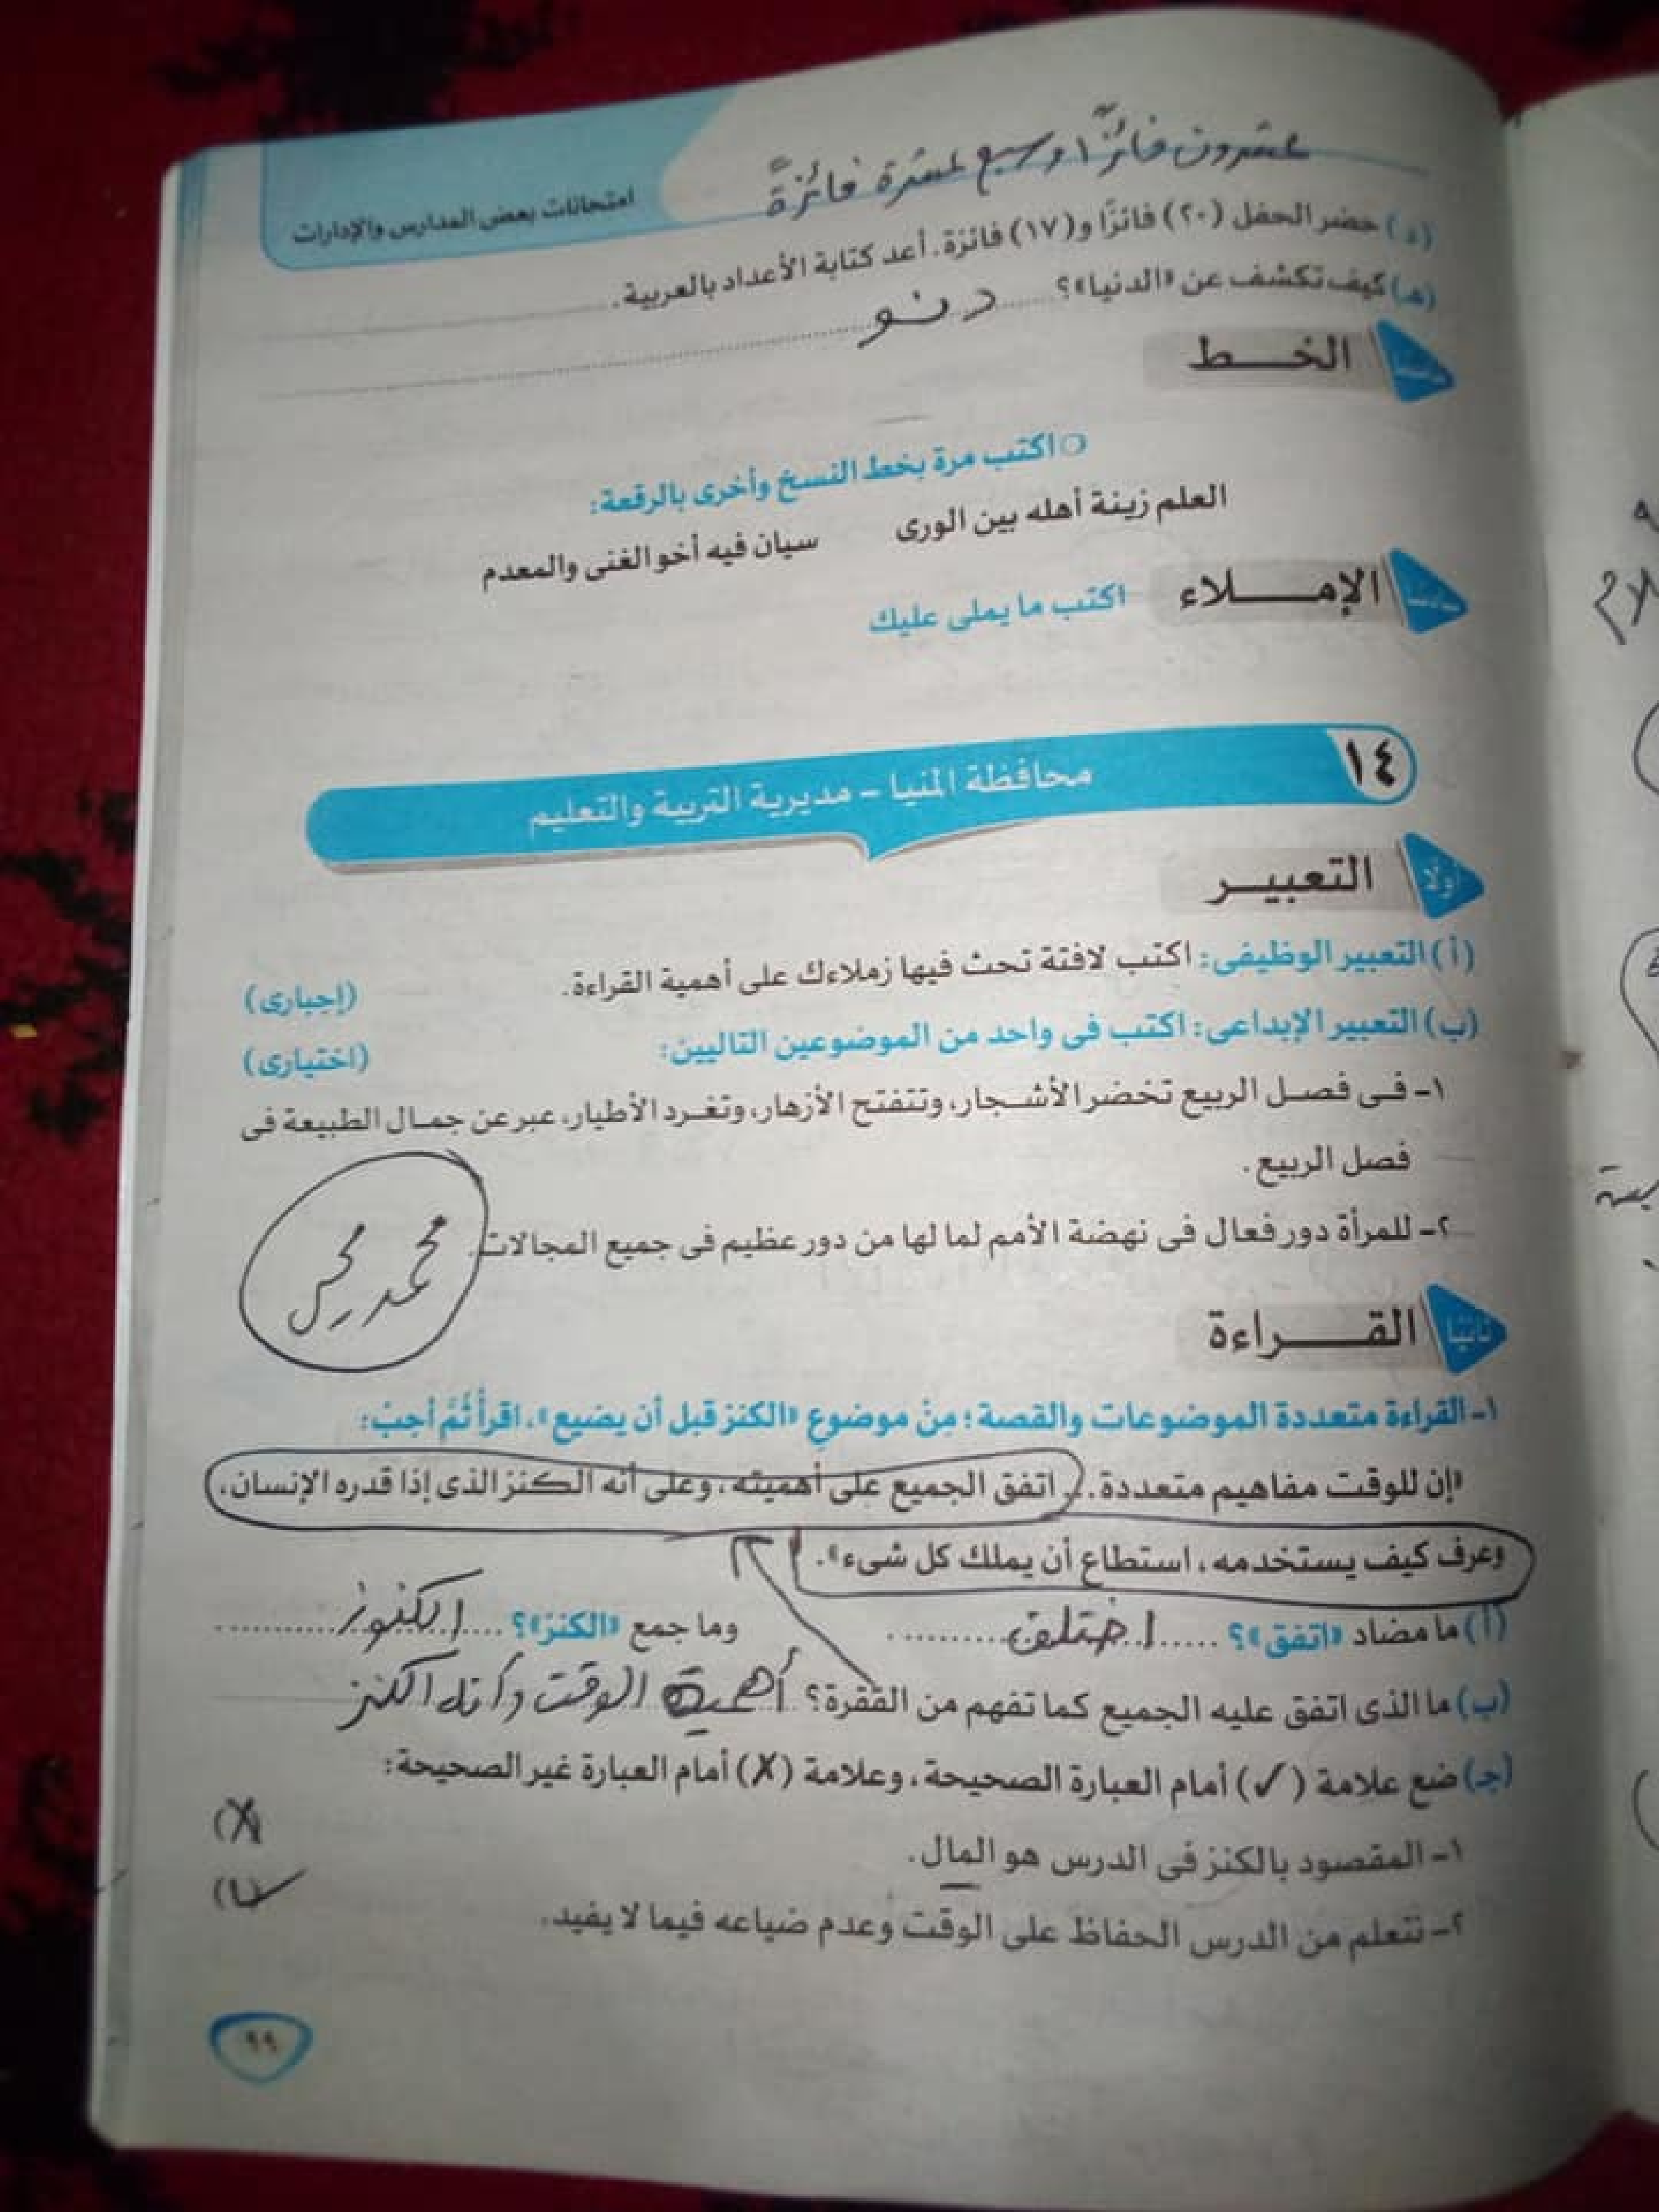 امتحانات بعض المدارس والإدارات
عشرون فائزًا وسبع عشرة فائزةً
(د) حضر الحفل (٢٠) فائزًا و(١٧) فائزة. أعد كتابة الأعداد بالعربية.
(هـ) كيف تكشف عن «الدنيا»؟ دنو
الخـــط
اكتب مرة بخط النسخ وأخرى بالرقعة:
العلم زينة أهله بين الورى سيان فيه أخو الغنى والمعدم
الإمـــلاء اكتب ما يملى عليك
١٤ محافظة المنيا - مديرية التربية والتعليم
أولًا التعبيــر
(أ) التعبير الوظيفى: اكتب لافتة تحث فيها زملاءك على أهمية القراءة. (إجبارى)
(ب) التعبير الإبداعى: اكتب فى واحد من الموضوعين التاليين: (اختيارى)
١- فـى فصـل الربيع تخضر الأشـجار، وتتفتح الأزهار، وتغـرد الأطيار، عبر عن جمـال الطبيعة فى
فصل الربيع.
٢- للمرأة دور فعال فى نهضة الأمم لما لها من دور عظيم فى جميع المجالات.
محمد
ثانيًا القـــراءة
١- القراءة متعددة الموضوعات والقصة؛ مِنْ موضوع «الكنز قبل أن يضيع»، اقرأْ ثُمَّ أجبْ:
«إن للوقت مفاهيم متعددة.. اتفق الجميع على أهميته، وعلى أنه الكنز الذى إذا قدره الإنسان،
وعرف كيف يستخدمه، استطاع أن يملك كل شىء».
(أ) ما مضاد «اتفق»؟ اختلف وما جمع «الكنز»؟ الكنوز
(ب) ما الذى اتفق عليه الجميع كما تفهم من الفقرة؟ أهمية الوقت وأنه الكنز
(جـ) ضع علامة (✓) أمام العبارة الصحيحة، وعلامة (✗) أمام العبارة غير الصحيحة:
١- المقصود بالكنز فى الدرس هو المال. (✗)
٢- نتعلم من الدرس الحفاظ على الوقت وعدم ضياعه فيما لا يفيد. (✓)
٩٩